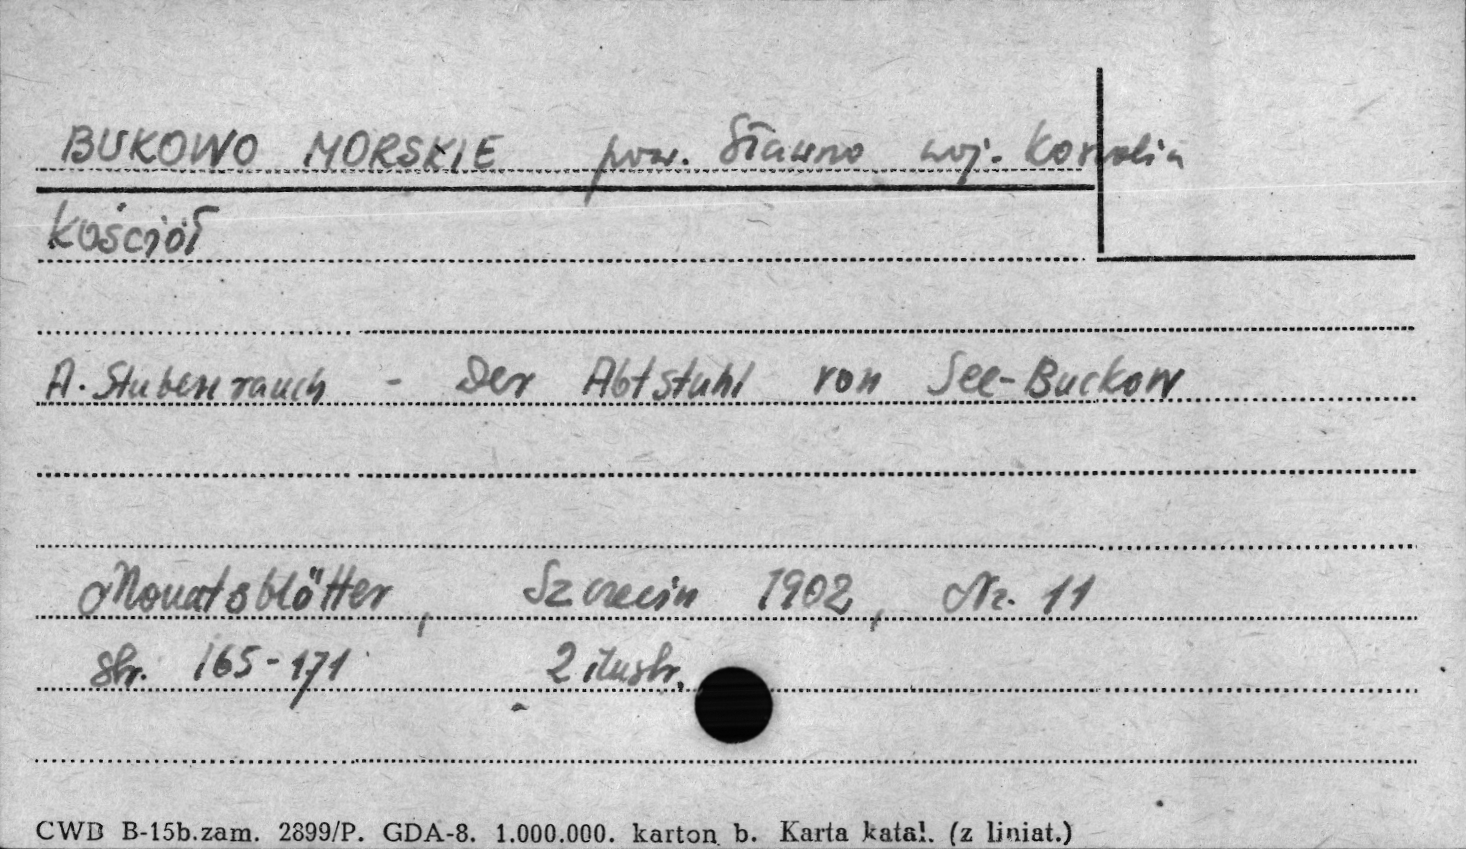 BUKOWO MORSKIE pow. Sławno woj. Koszalin
Kościół
A. Stubenrauch - Der Abtstuhl von See-Buckow
Monatsblätter, Szczecin 1902, Nr. 11
str. 165-171 2 ilustr.
CWD B-15b.zam. 2899/P. GDA-8. 1.000.000. karton b. Karta katal. (z liniat.)